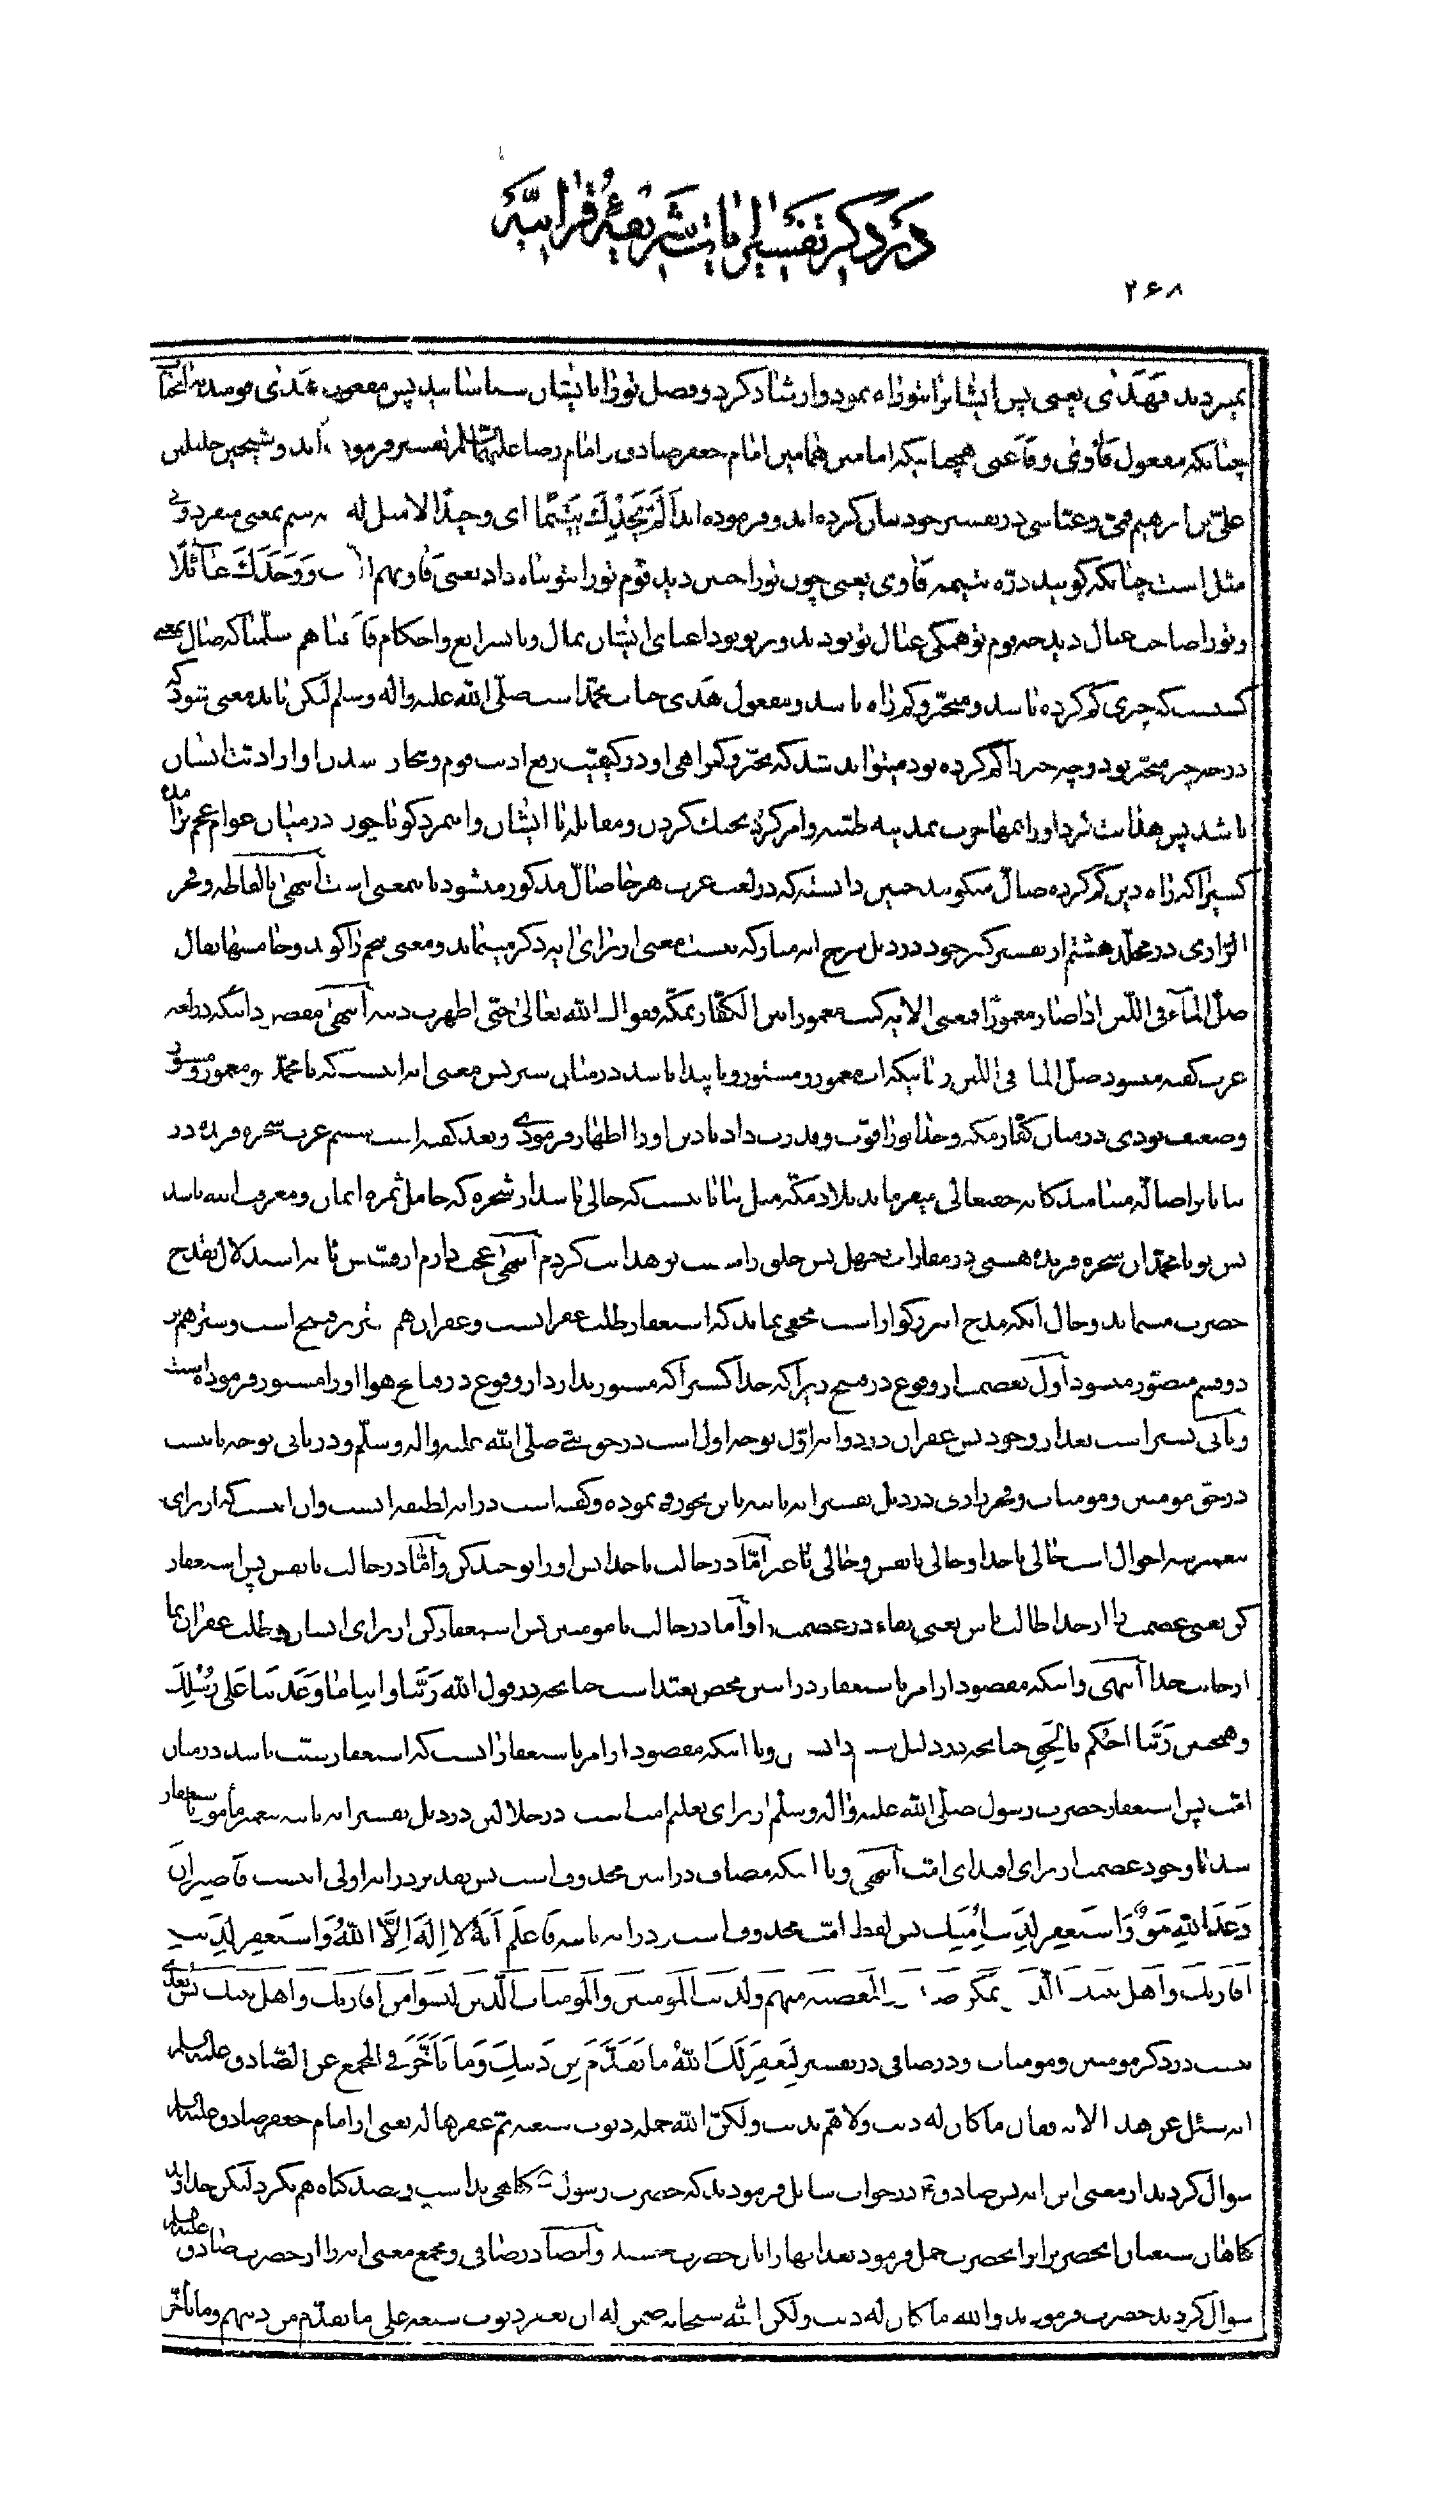 در ذکر تفسیر ایات شریفهٔ قرانیّه
۲۶۸
نمیبردند فَهَدٰی یعنی پس ایشانرا بتو راه نمود و ارشاد کرد و فضل تو را بایشان شناسانید پس مفعول هَدٰی قومند نه انجناب
چنانکه مفعول فَاٰوٰی و فَاَغنی همچنانیکه امامین همامین امام جعفر صادق و امام رضا علیهماالسّلام تفسیر فرموده‌اند و شیخین جلیلین
علیّ بن ابرهیم قمّی و عیّاشی در تفسیر خود بیان کرده‌اند و فرموده‌اند اَلَمْ یَجِدْكَ یَتیمًا ای وحیدًا لا مثل له یتیم بمعنی منفرد و بی
مثل است چنانکه گویند درّه یتیمه فَاٰوی یعنی چون تو را چنین دید قوم تو را بتو پناه داد یعنی فاویهم الیك وَوَجَدَكَ عٰآئلًا
و تو را صاحب عیال دید چه قوم تو همگی عیال تو بودند و بر تو بود اغنای ایشان بمال و یا بشرایع و احکام فَاَغناهم سلّمنا که ضالّ بمعنی
کسیست که چیزی گم کرده باشد و متحیّر و گم راه باشد و مفعول هَدی جناب محمّد است صلّی الله علیه واله وسلم لیکن باید معنی نمود که
در چه چیز متحیّر بود و چه چیز را گم کرده بود میتواند شد که تحیّر و گمراهی او در کیفیّت رفع اذیت قوم و
باشد پس هدایت کرد او را بمهاجرت بمدینه طیّبه و امر کرد بجنك کردن و مقابله با ایشان و این مرد گویا چون در میان عوام عجم نژاد
کسیرا که راه دین گم کرده ضالّ میگویند چنین دانسته که در لغت عرب هر جا ضالّ مذکور میشود باینمعنی است انتهی بالفاظه و فخر
الرّازی در مجلّد هشتم از تفسیر کبیر خود در ذیل شرح ایه مبارکه بیست معنی از برای ایه ذکر مینماید و معنی پنجم را گوید و خامسها یقال
ضلّ المآء فی اللّبن اذا صار مغمورًا فمعنی الایة کنت مغمورا بین الکفّار بمکّة فقوّاك الله تعالیٰ حتّی اظهرت دینه انتهی مقصود اینکه در لغة
عرب گفته میشود ضلّ الماء فی اللبن زمانیکه اب مغمور و مستور و ناپیدا باشد در میان شیر پس معنی ایه اینست که یا محمّد تو مغمور و مستور
و ضعیف بودی در میان کفّار مکه و خدا تو را قوّت و قدرت داد تا دین او را اظهار فرمودی و بعد گفته است ششم عرب شجره فریده در
بیابانرا ضالّه مینامند کانه حقتعالی میفرماید بلاد مکّه مثل بیابانیست که خالی باشد از شجره که حامل ثمره ایمان و معرفت الله باشد
پس تو یا محمّد ان شجره فریده هستی در مفازات جهل پس خلق را بسبب تو هدایت کردم انتهی عجب دارم از قسّیس که باین ایه استدلال بقدح
حضرت مینماید و حال انکه مدح ان بزرگوار است مخفی نماند که استغفار طلب غفرانست و غفران هم ستر بر قبیح است و ستر هم بر
دو قسم متصوّر میشود اول بعصمت از وقوع در قبیح زیرا که خدا کسیرا که مستور بدارد از وقوع در قبایح هوا او را مستور فرموده است
و ثانی ستر است بعد از وجود پس غفران در دو ایه اوّل بوجه اول است در حق نبیّ صلّی الله علیه واله وسلّم و در ثانی بوجه ثانیست
در حقّ مومنین و مومنات و فخر رازی در ذیل تفسیر ایه ثانیه باین نحو رقم نموده و گفته است در ایه لطیفه ایست و ان اینست که از برای
پیغمبر سه احوال است حالی با خدا و حالی با نفس و حالی با غیر امّا در حالت با خدا پس او را توحید کن و امّا در حالت با نفس پس استغفار
کن یعنی عصمت را از خدا طالب باش یعنی بقاء در عصمت را و اما در حالت با مومنین پس استغفار کن از برای ایشان و طلب غفران نما
از جانب خدا انتهی و اینکه مقصود از امر باستغفار در ایتین محض تعبّد است چنانچه در قول الله رَبَّنا و اتنا مٰا وَعَدتَنا عَلی رُسُلِكَ
و همچنین رَبّنا احْکُم بِالْحَقِ چنانچه در دلیل دانستی و یا اینکه مقصود از امر باستغفار انست که استغفار سنّت باشد در میان
امّت پس استغفار حضرت رسول صلّی الله علیه واله وسلّم از برای تعلیم امت است در جلالین در ذیل تفسیر ایه ثانیه پیغمبر مأمور باستغفار
شد با وجود عصمت از برای اقتدای امّت انتهی و یا اینکه مضاف در ایتین محذوف است پس تقدیر در ایه اولی اینست فَاصبِر اِنَّ
وَعدَ اللهِ حَقٌّ وَاستَغفِر لِذَنبِ اُمَّتِك پس لفظ امّت محذوف است و در ایه ثانیه فَاعلَم اَنّهُ لا اِلٰهَ اِلَّا اللهُ وَاستَغفِر لِذَنبِ
اقاربك و اهل بیتك الّذین منهم ولذنب المؤمنین والمؤمنات الّذین لیسوا من اقاربك و اهل بیتك پس بُعدی
نیست در ذکر مومنین و مومنات و در صافی در تفسیر لِیَغفِرَ لَكَ اللهُ ما تَقَدَّمَ مِن ذَنبِكَ وَما تَاَخَّرَ فی المجمع عن الصّادق علیه السلام
انه سئل عن هذه الایه فقال ما کان له ذنب ولا همّ بذنب ولکنّ الله حمله ذنوب شیعته ثمّ غفرها له یعنی از امام جعفر صادق علیه السلام
سوال کردند از معنی این ایه پس صادق ع در جواب سایل فرمودند که حضرت رسول ص گناهی نداشت و قصد گناه هم نکرد لیکن خداوند
گناهان شیعیان انحضرترا بر انحضرت حمل فرمود بعد انها را بان حضرت بخشید و ایضا در صافی و مجمع معنی ایه را از حضرت صادق علیه السلام
سوال کردند حضرت فرمودند والله ما کان له ذنب ولکن الله سبحانه ضمن له ان یغفر ذنوب شیعة علی ما تقدّم من ذنبهم وما تأخّر